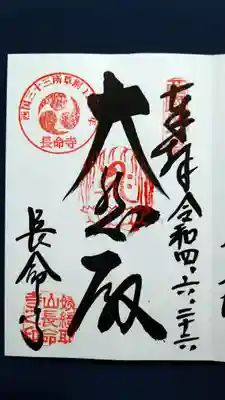 奉拝 令和四、六、二十六
大悲殿
長命寺
西国三十三所草創1
長命寺
姨綺耶
山長命
寺之印